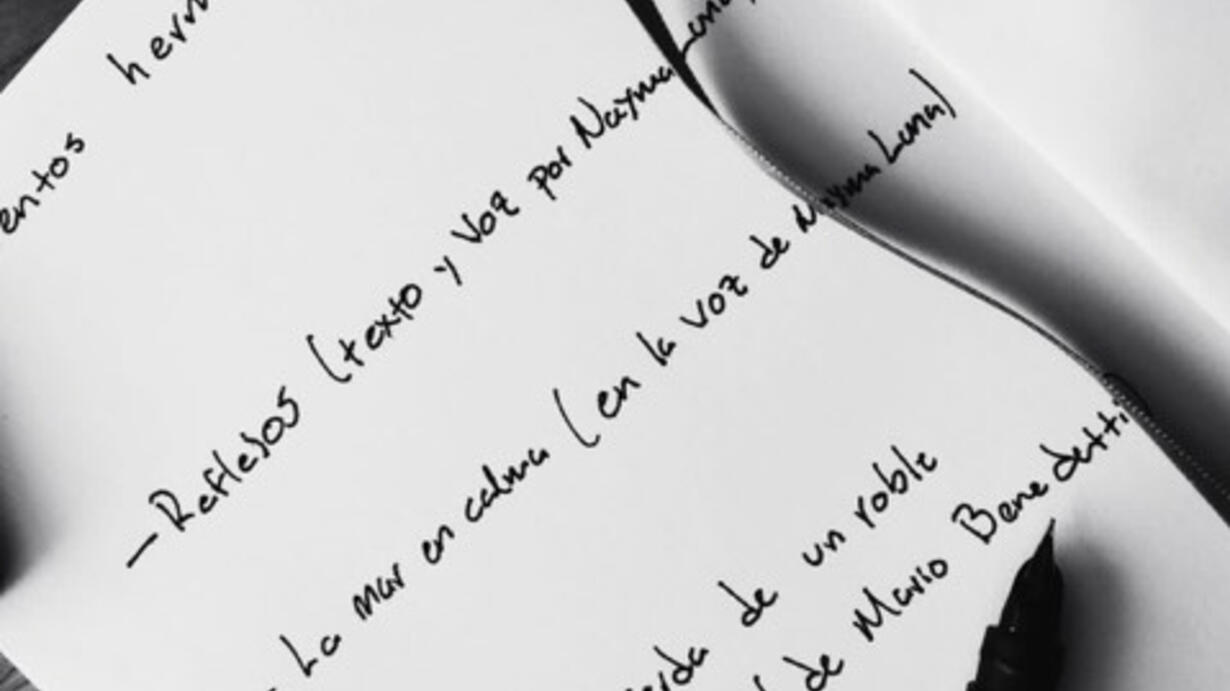 entos herm
– Reflejos (texto y Voz por Nayma Luna)
La mar en calma (en la voz de Nayma Luna)
de un roble
de Mario Benedetti